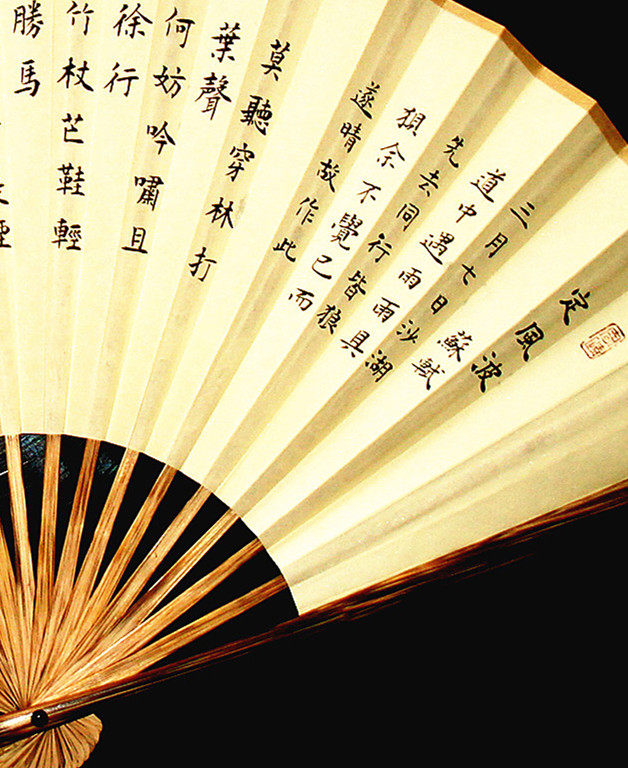 定風波
蘇軾
三月七日沙湖
道中遇雨雨具
先去同行皆狼
狽余不覺已而
遂晴故作此
莫聽穿林打
葉聲
何妨吟嘯且
徐行
竹杖芒鞋輕
勝馬